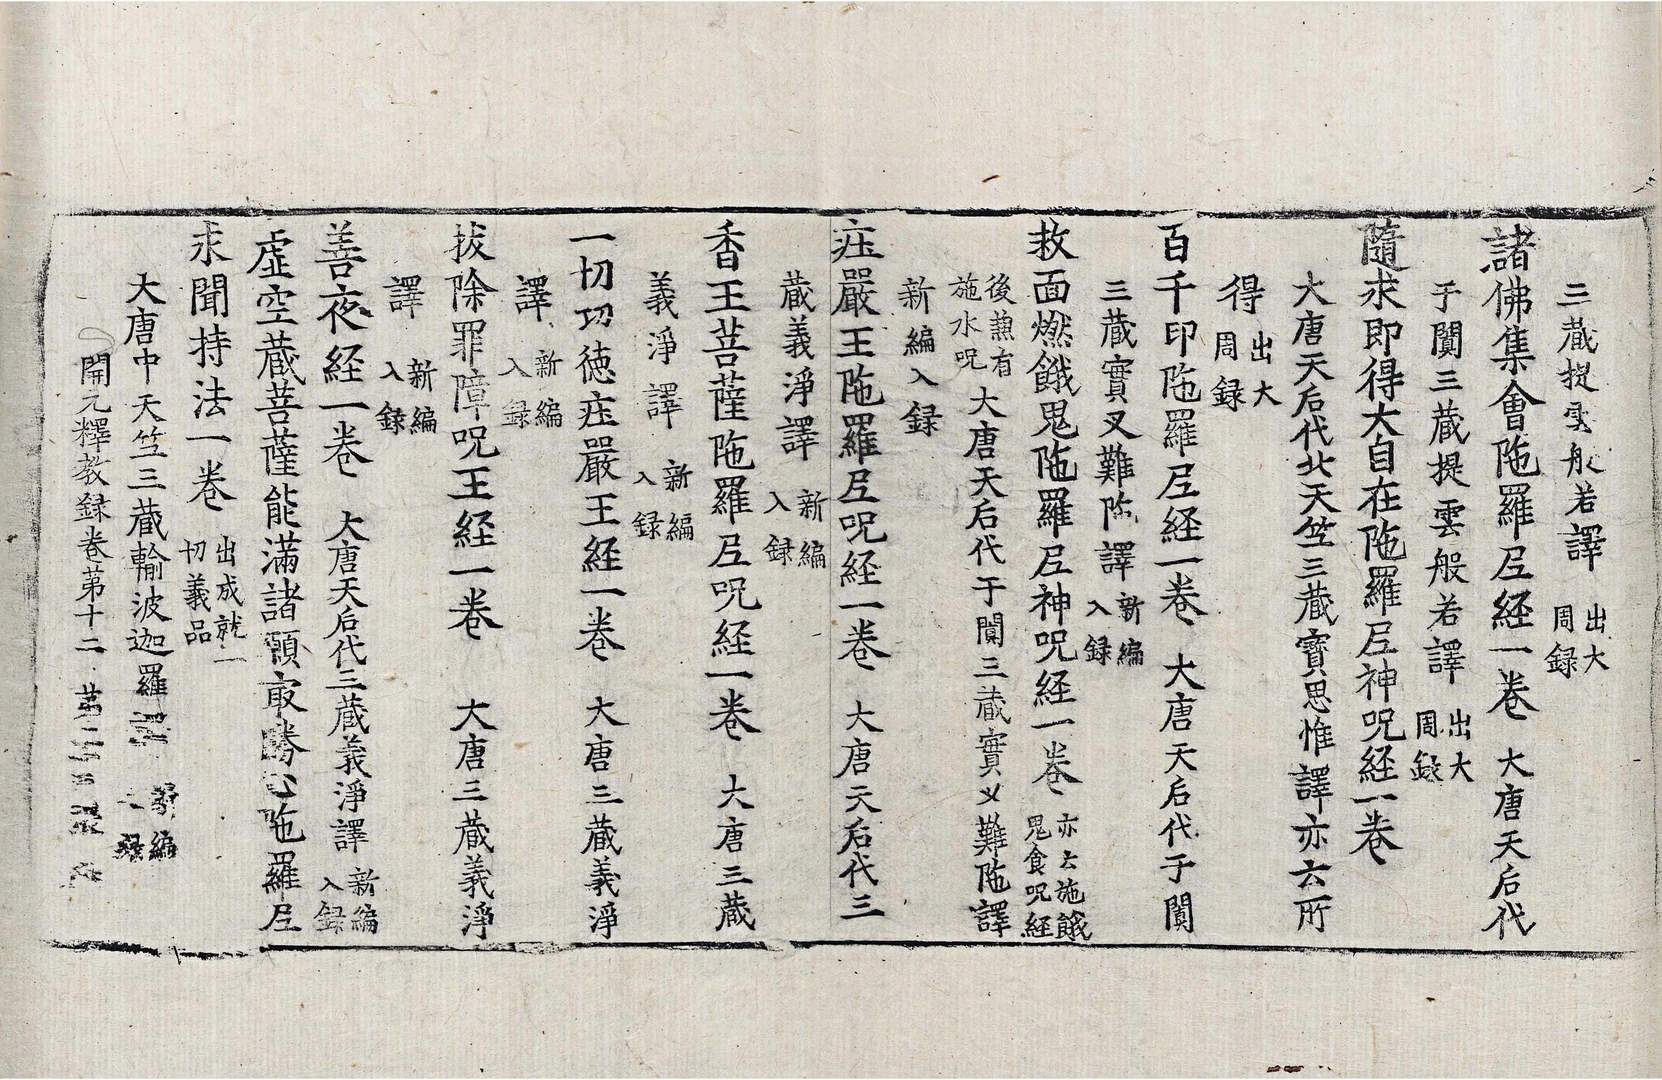 三藏提雲般若譯 出大周録
諸佛集會陁羅尼経一卷 大唐天后代
于闐三藏提雲般若譯 出大周録
隨求即得大自在陁羅尼神呪経一卷
大唐天后代北天竺三藏寳思惟譯亦云所
得 出大周録
百千印陁羅尼経一卷 大唐天后代于闐
三藏實叉難陁譯 新編入録
救面燃餓鬼陁羅尼神呪経一卷 亦云施餓鬼食呪経
後兼有施水呪 大唐天后代于闐三藏實叉難陁譯
新編入録
庄嚴王陁羅尼呪経一卷 大唐天后代三
藏義淨譯 新編入録
香王菩薩陁羅尼呪経一卷 大唐三藏
義淨譯 新編入録
一切功徳庄嚴王経一卷 大唐三藏義淨
譯 新編入録
拔除罪障呪王経一卷 大唐三藏義淨
譯 新編入録
善夜経一卷 大唐天后代三藏義淨譯 新編入録
虚空藏菩薩能滿諸願㝡勝心陁羅尼
求聞持法一卷 出成就一切義品
大唐中天竺三藏輸波迦羅 新編録
開元釋教録卷苐十二 苐